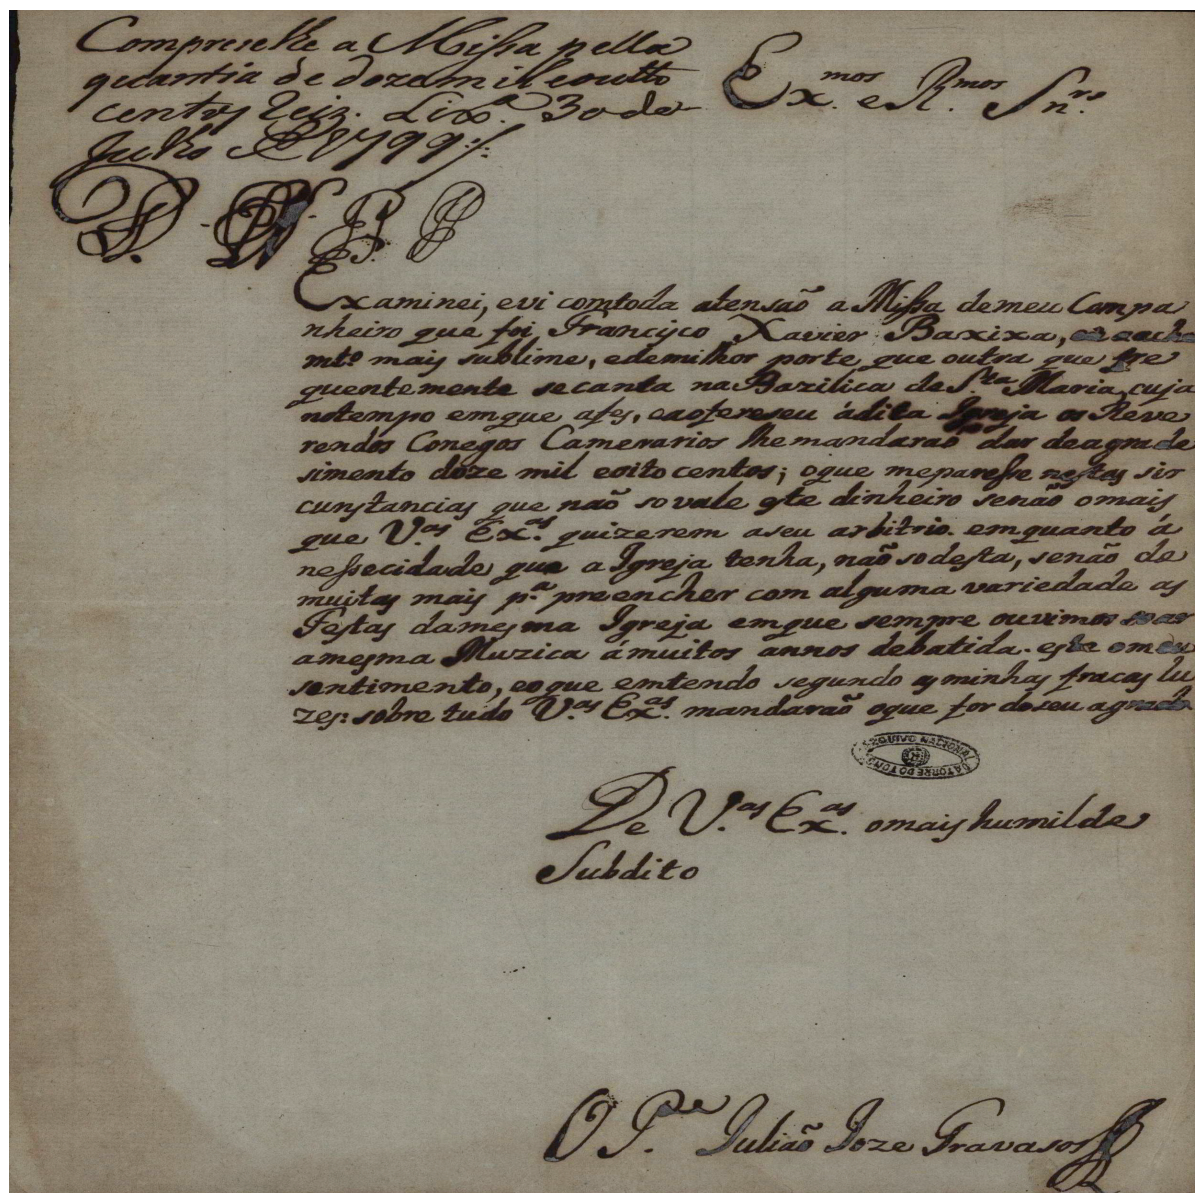 Compreselhe a Missa pella
quantia de dozemil eoutto
centys Reiz. Lix.ª 30 de
Julho D 1799
Ex.mos e R.mos Sn.rs
Examinei, e vi comtoda atensaõ a Missa demeu Compa
nheiro que foi Francisco Xavier Baxixa,
mt.º mais sublime, edemilhor porte que outra que fre
quentemente secanta na Bazilica de S.ta Maria, cuja
notempo emque afes, eaofereseu áditta Igreja os Reve
rendos Conegos Camerarios lhemandaraõ dar deagrade
simento doze mil eoito centos; oque meparesse nestas sir
cunstancias que naõ sovale este dinheiro senaõ omais
que V.as Ex.as quizerem aseu arbitrio. emquanto á
nessecidade que a Igreja tenha, naõ sodesta, senaõ de
muitas mais p.ª preencher com alguma variedade as
Festas damesma Igreja emque sempre ouvimos soar
amesma Muzica ámuitos ánnos debatida. este omeu
sentimento, eoque emtendo segundo as minhas fracas lu
zes: sobre tudo V.as Ex.as mandaraõ oque for doseu agrado
ARQUIVO NACIONAL DA TORRE DO TOMBO
De V.as Ex.as omais humilde
Subdito
O P.de Juliaõ Joze Travasos